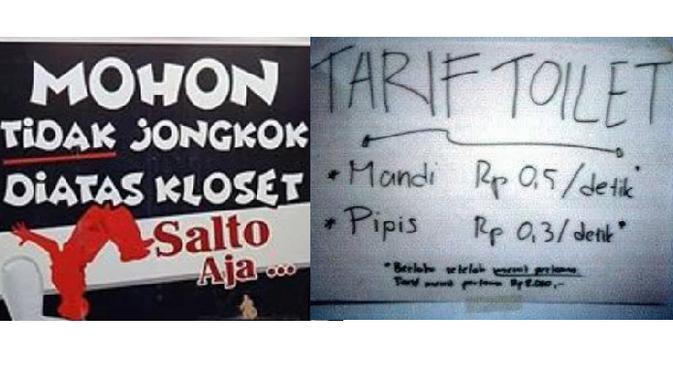 MOHON
TiDAK JONGKOK
DiATAS KLOSET
Salto
Aja ...
TARIF TOILET
* Mandi Rp 0,5/detik*
* Pipis Rp 0,3/detik*
*Berlaku setelah menit pertama
Tarif menit pertama Rp 2.000,-